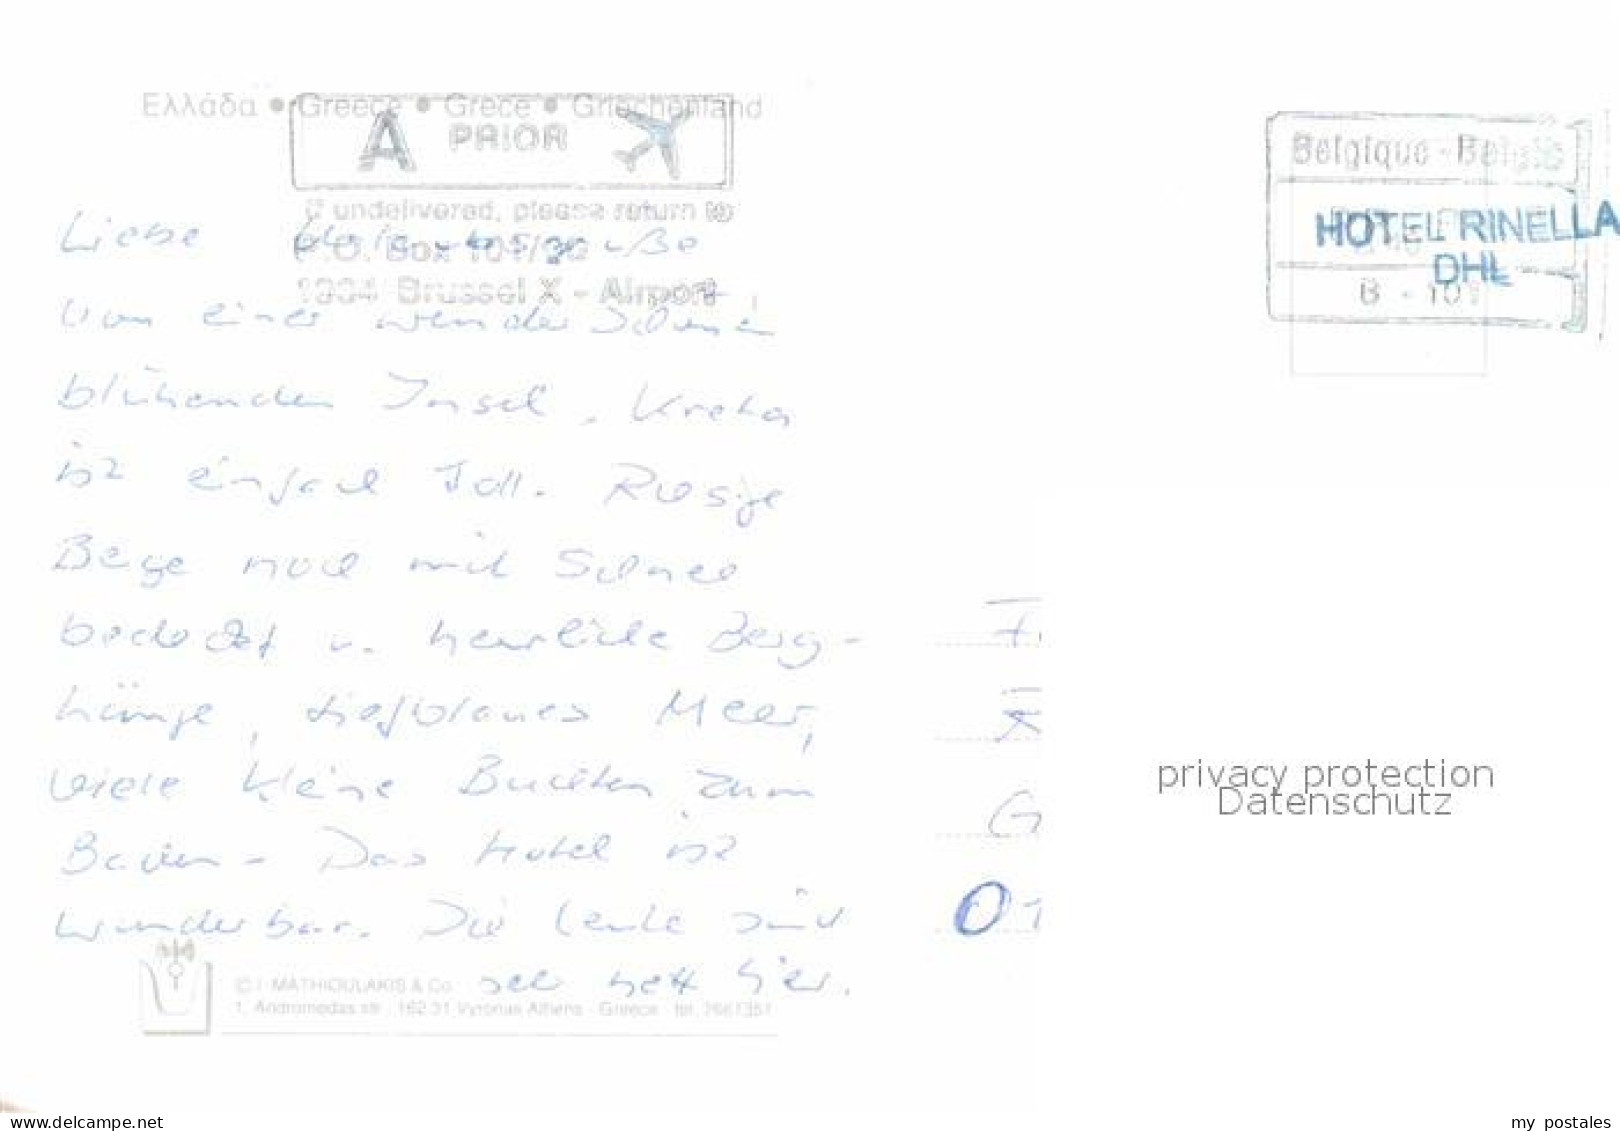 Ελλάδα • Greece • Grece • Griechenland
A PRIOR
If undelivered, please return to
P.O. Box 101/30
1934 Brussel X - Airport
Belgique - België
HOTEL RINELLA
DHL
B - 101
Liebe
von einer wunderschönen
blühenden Insel. Kreta
ist einfach Toll. Riesige
Berge noch mit Schnee
bedeckt u. herrliche Berg-
hänge, tiefblaues Meer,
viele kleine Buchten zum
Baden - Das Hotel ist
wunderbar. Die Leute sind
seh nett hier.
© I. MATHIOULAKIS & Co
1, Andromedas str., 162 31 Vyronas Athens - Greece - tel. 7661351
G
privacy protection
Datenschutz
www.delcampe.net
my_postales